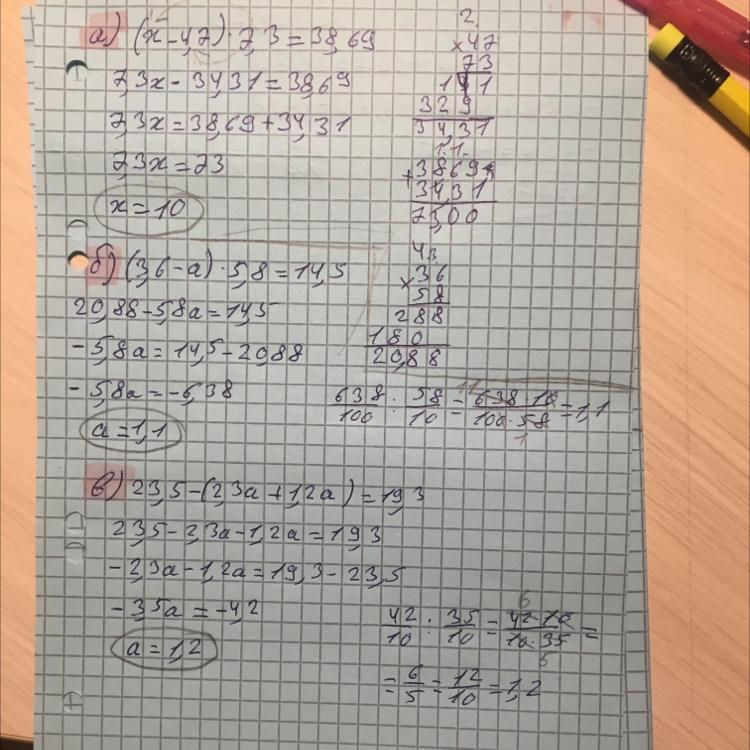 а) (x - 4,7) · 7,3 = 38,69
7,3x - 34,31 = 38,69
7,3x = 38,69 + 34,31
7,3x = 73
x = 10
2.
×47
73
141
329
34,31
1.1.
+38,69
34,31
73,00
б) (3,6 - a) · 5,8 = 14,5
20,88 - 5,8a = 14,5
- 5,8a = 14,5 - 20,88
- 5,8a = -6,38
a = 1,1
43.
×36
58
288
180
20,88
638/100 : 58/10 = 638·10/100·58 = 1,1
11
1
в) 23,5 - (2,3a + 1,2a) = 19,3
23,5 - 2,3a - 1,2a = 19,3
- 2,3a - 1,2a = 19,3 - 23,5
- 3,5a = -4,2
a = 1,2
6
42/10 : 35/10 = 42·10/10·35 =
5
= 6/5 = 12/10 = 1,2